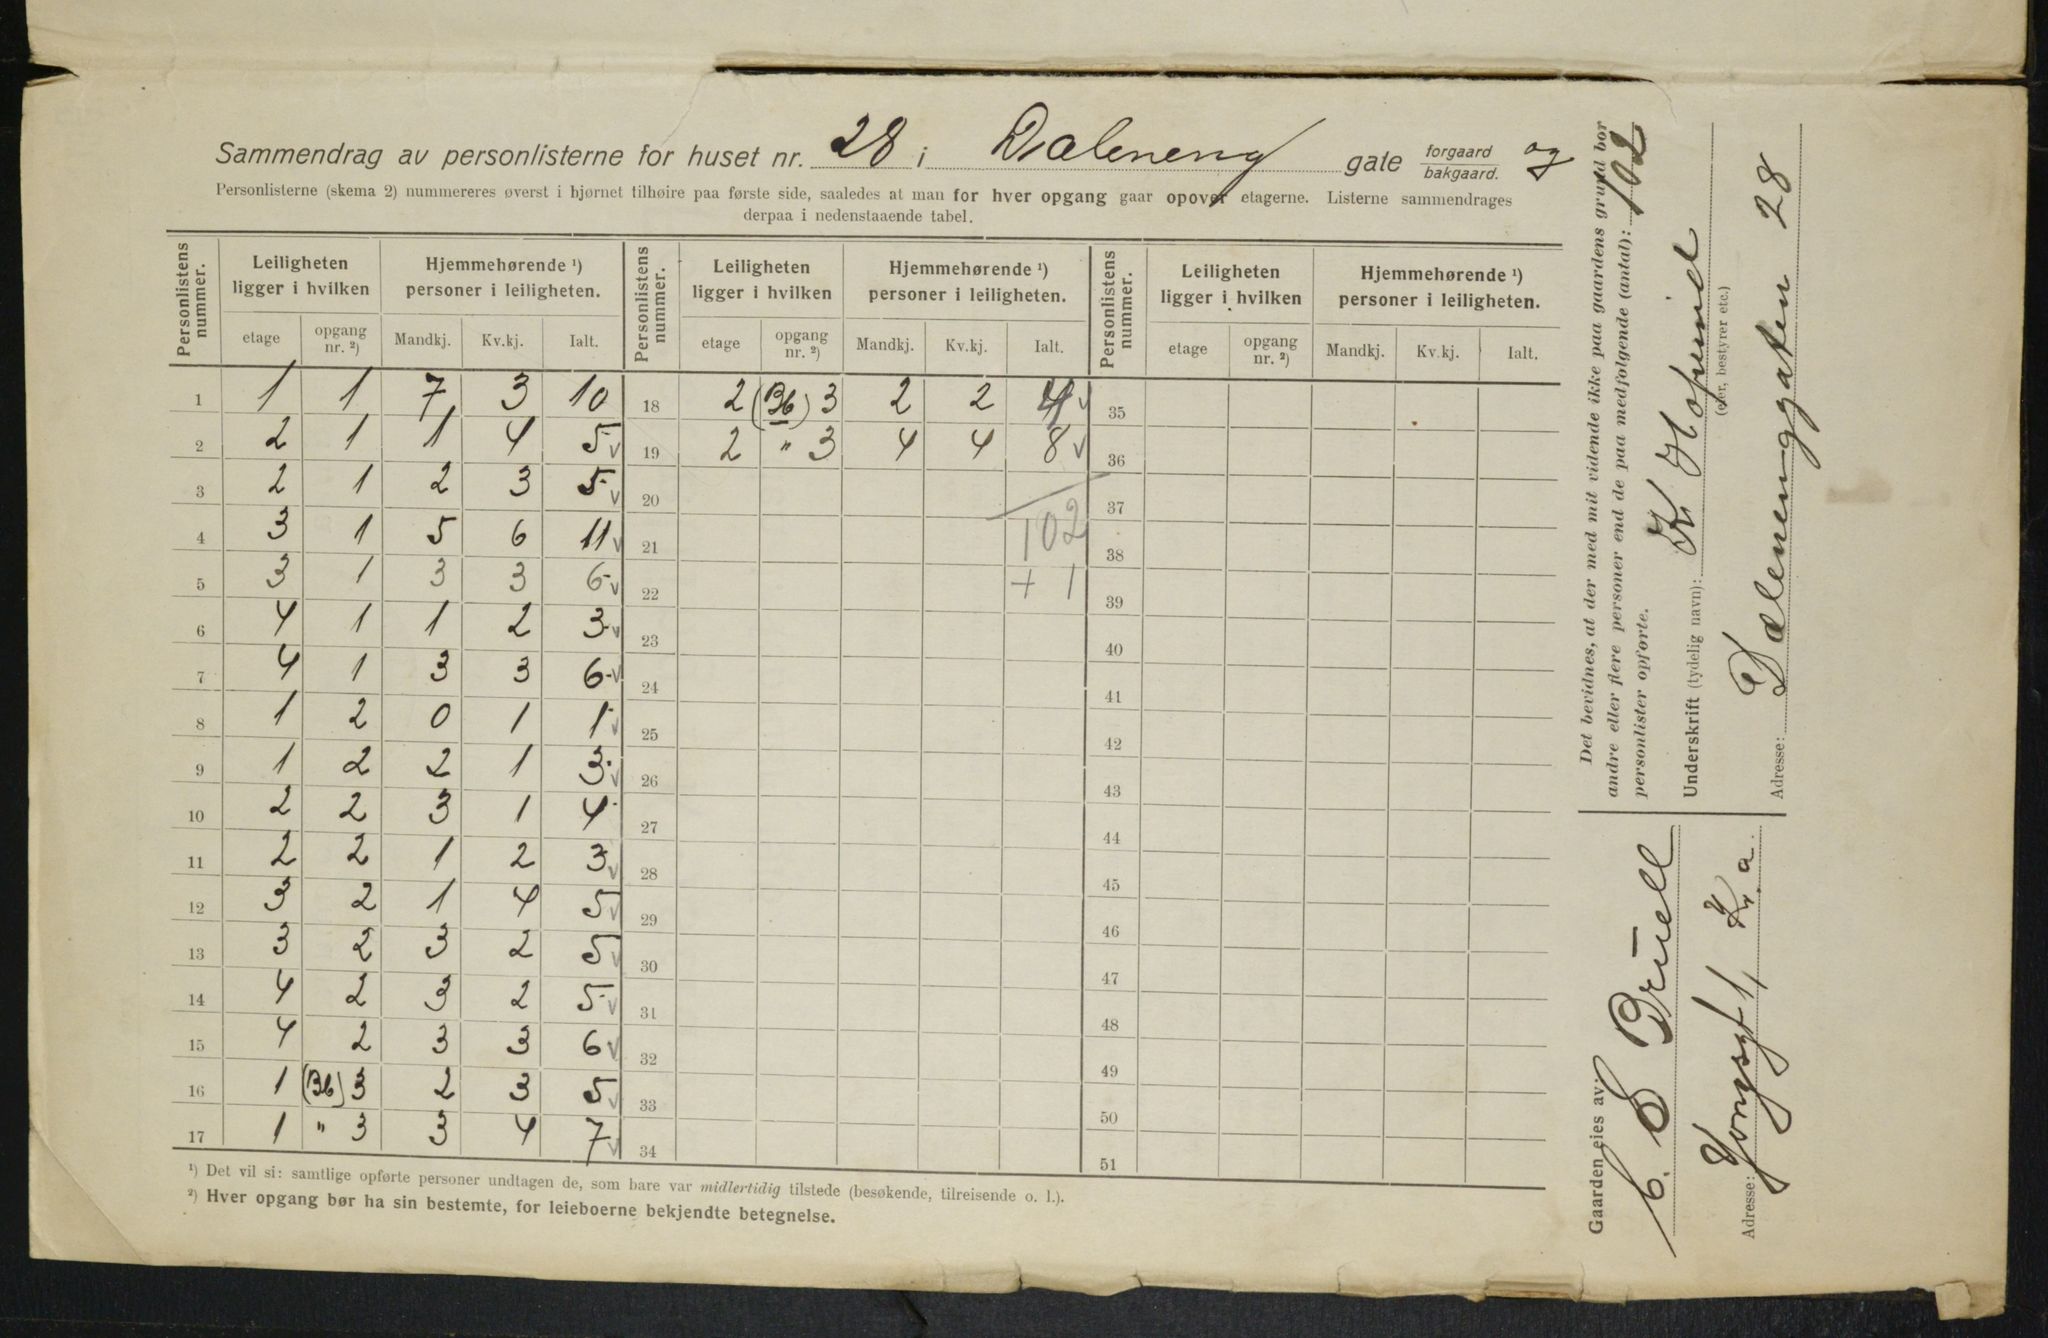 Sammendrag av personlisterne for huset nr. 28 i Dæleneng gate forgaard og
bakgaard.
Personlisterne (skema 2) nummereres øverst i hjørnet tilhøire paa første side, saaledes at man for hver opgang gaar opover etagerne. Listerne sammendrages
derpaa i nedenstaaende tabel.
Personlistens nummer. Leiligheten ligger i hvilken Hjemmehørende ¹) personer i leiligheten. Personlistens nummer. Leiligheten ligger i hvilken Hjemmehørende ¹) personer i leiligheten. Personlistens nummer. Leiligheten ligger i hvilken Hjemmehørende ¹) personer i leiligheten.
etage opgang nr. ²) Mandkj. Kv.kj. Ialt. etage opgang nr. ²) Mandkj. Kv.kj. Ialt. etage opgang nr. ²) Mandkj. Kv.kj. Ialt.
1 1 1 7 3 10 18 2 (Bb) 3 2 2 4 v 35
2 2 1 1 4 5 v 19 2 " 3 4 4 8 v 36
3 2 1 2 3 5 v 20 37
4 3 1 5 6 11 v 21 102 38
5 3 1 3 3 6 v 22 + 1 39
6 4 1 1 2 3 v 23 40
7 4 1 3 3 6 v 24 41
8 1 2 0 1 1 v 25 42
9 1 2 2 1 3 v 26 43
10 2 2 3 1 4 27 44
11 2 2 1 2 3 v 28 45
12 3 2 1 4 5 v 29 46
13 3 2 3 2 5 v 30 47
14 4 2 3 2 5 v 31 48
15 4 2 3 3 6 v 32 49
16 1 (Bb) 3 2 3 5 v 33 50
17 1 " 3 3 4 7 v 34 51
¹) Det vil si: samtlige opførte personer undtagen de, som bare var midlertidig tilstede (besøkende, tilreisende o. l.).
²) Hver opgang bør ha sin bestemte, for leieboerne bekjendte betegnelse.
Det bevidnes, at der med mit vidende ikke paa gaardens grund bor
andre eller flere personer end de paa medfølgende (antal): 102
personlister opførte.
Underskrift (tydelig navn): K
(eier, bestyrer etc.)
Adresse: Dælenenggaten 28
Gaarden eies av:
C. Bruell
Adresse: Kr.a.